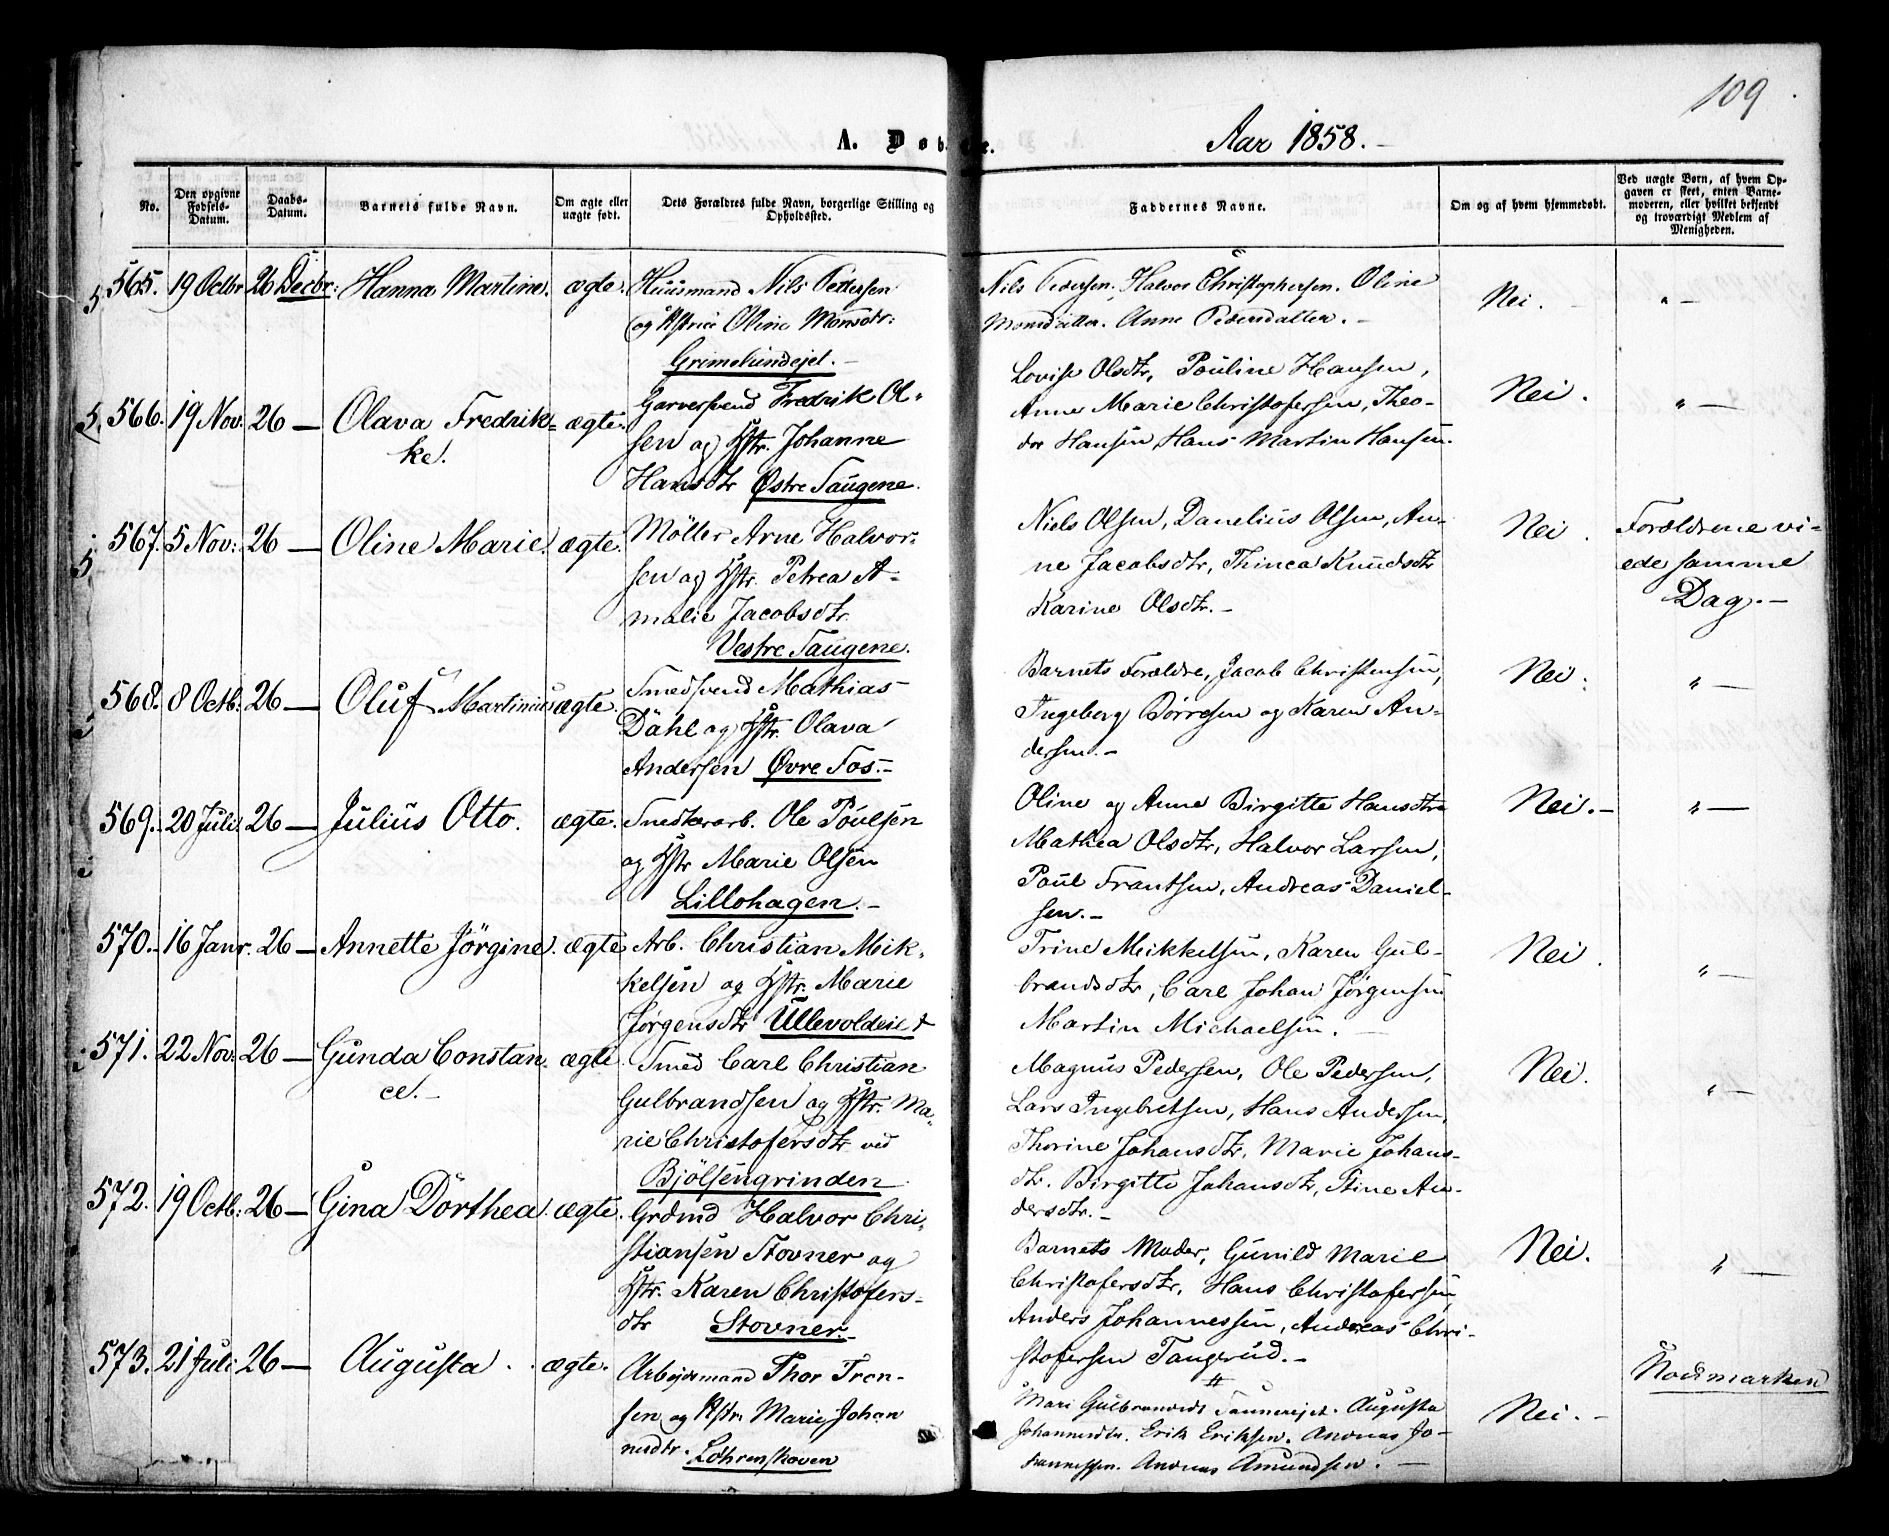 109
A. Døbte.
Aar 1858.
No.
Den opgivne Fødsels-Datum.
Daabs-Datum.
Barnets fulde Navn.
Om ægte eller uægte født.
Dets Forældres fulde Navn, borgerlige Stilling og Opholdssted.
Faddernes Navne.
Om og af hvem hjemmedøbt.
Ved uægte Børn, af hvem Opgaven er skeet, enten Barnemoderen, eller hvilket bekjendt og troværdigt Medlem af Menigheden.
565. 19 Octbr 26 Decbr: Hanna Martine. ægte. Huusmand Nils Pettersen
og Hstrue Oline Monsdtr:
Grimelundejet.
Nils Pedersen. Halvor Christophersen. Oline
Monsdatter. Anne Pedersdatter.
Nei.
" —
566. 19 Nov. 26 — Olava Fredrik=
ke.
ægte. Garversvend Fredrik Ol-
sen og Hstr. Johanne
Hansdtr Østre Taugene.
Lovise Olsdtr, Pouline Hansen,
Anne Marie Christofersen, Theo-
dor Hansen, Hans Martin Hansen.
Nei.
" —
567. 5 Nov: 26 — Oline Marie. ægte. Möller Arne Halvor-
sen og Hstr. Petrea A-
malie Jacobsdtr.
Vestre Taugene.
Niels Olsen, Danelius Olsen, An-
ne Jacobsdtr, Thinea Knudsdtr
Karine Olsdtr.
Nei.
Forældrene vi-
ede samme
Dag.
568. 8 Octb. 26 — Oluf Martinius ægte. Smedsvend Mathias
Dahl og Hstr. Olava
Andersen Øvre Fos.
Barnets Forældre, Jacob Christensen,
Ingeborg Børresen og Karen An-
dersen.
Nei.
" —
569. 20 Juli 26 — Julius Otto. ægte. Snedkerarb. Ole Poulsen
og Hstr Marie Olsen
Lillohagen.
Oline og Anne Birgitte Hansdtre
Mathea Olsdtr, Halvor Larsen,
Poul Frantsen, Andreas Daniel-
sen.
Nei.
" —
570. 16 Janr. 26 — Annette Jörgine. ægte. Arb. Christian Mik-
kelsen og Hstr. Marie
Jörgensdtr Ullevoldeiet
Trine Meikkelsen, Karen Gul-
brandsdtr, Carl Johan Jørgensen
Martin Michaelsen.
Nei.
" —
571. 22 Nov: 26 — Gunda Constan
ce.
ægte. Smed Carl Christian
Gulbrandsen og Hstr. Ma-
rie Christofersdtr ved
Bjölsengrinden
Magnus Pedersen, Ole Pedersen,
Lars Ingebretsen, Hans Andersen,
Thorine Johansdtr, Marie Johans-
dtr. Birgitte Johansdtr, Stine An-
dersdtr.
Nei.
" —
572. 19 Octb: 26 — Gina Dorthea. ægte. Grdmd Halvor Chri-
stiansen Stovner og
Hstr. Karen Christofers-
dtr Stovner.
Barnets Moder, Gunild Marie
Christofersdtr, Hans Christofersen,
Anders Johannessen, Andreas Chri-
stofersen Tangerud.
Nei.
" —
573. 21 Juli 26 — Augusta. ægte. Arbejdsmand Thor Tron-
sen og Hstr. Marie Johan
nesdtr.
Mari Gulbrandsdtr Augusta
Johannesdtr. Erik Eriksen. Andreas Jo-
hannessen. Andreas Amundsen.
Nei.
Nordmarken